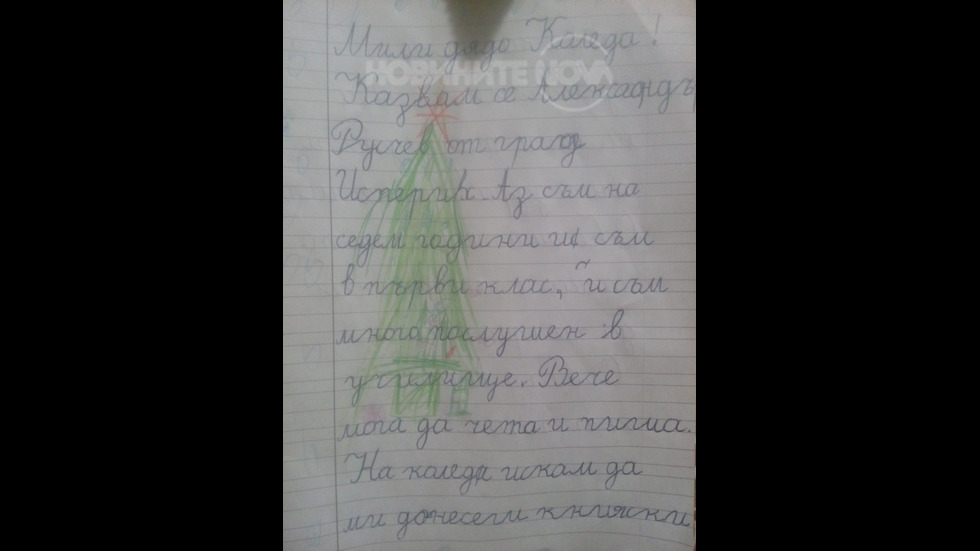 Мили дядо Коледа!
НОВИНИТЕ NOVA
Казвам се Александъ
Русчев от град
Исперих. Аз съм на
седем години и съм
в първи клас, и съм
много послушен в
училище. Вече
мога да чета и пиша.
На каледа искам да
ми донесеш книжни